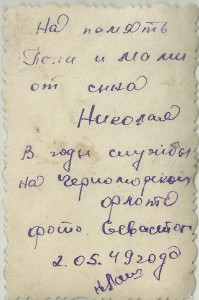 На память
Папи и мами
от сына
Николая
В годы службы
на Черноморском
флоте
фото. Севастоп.
2.05.49 года